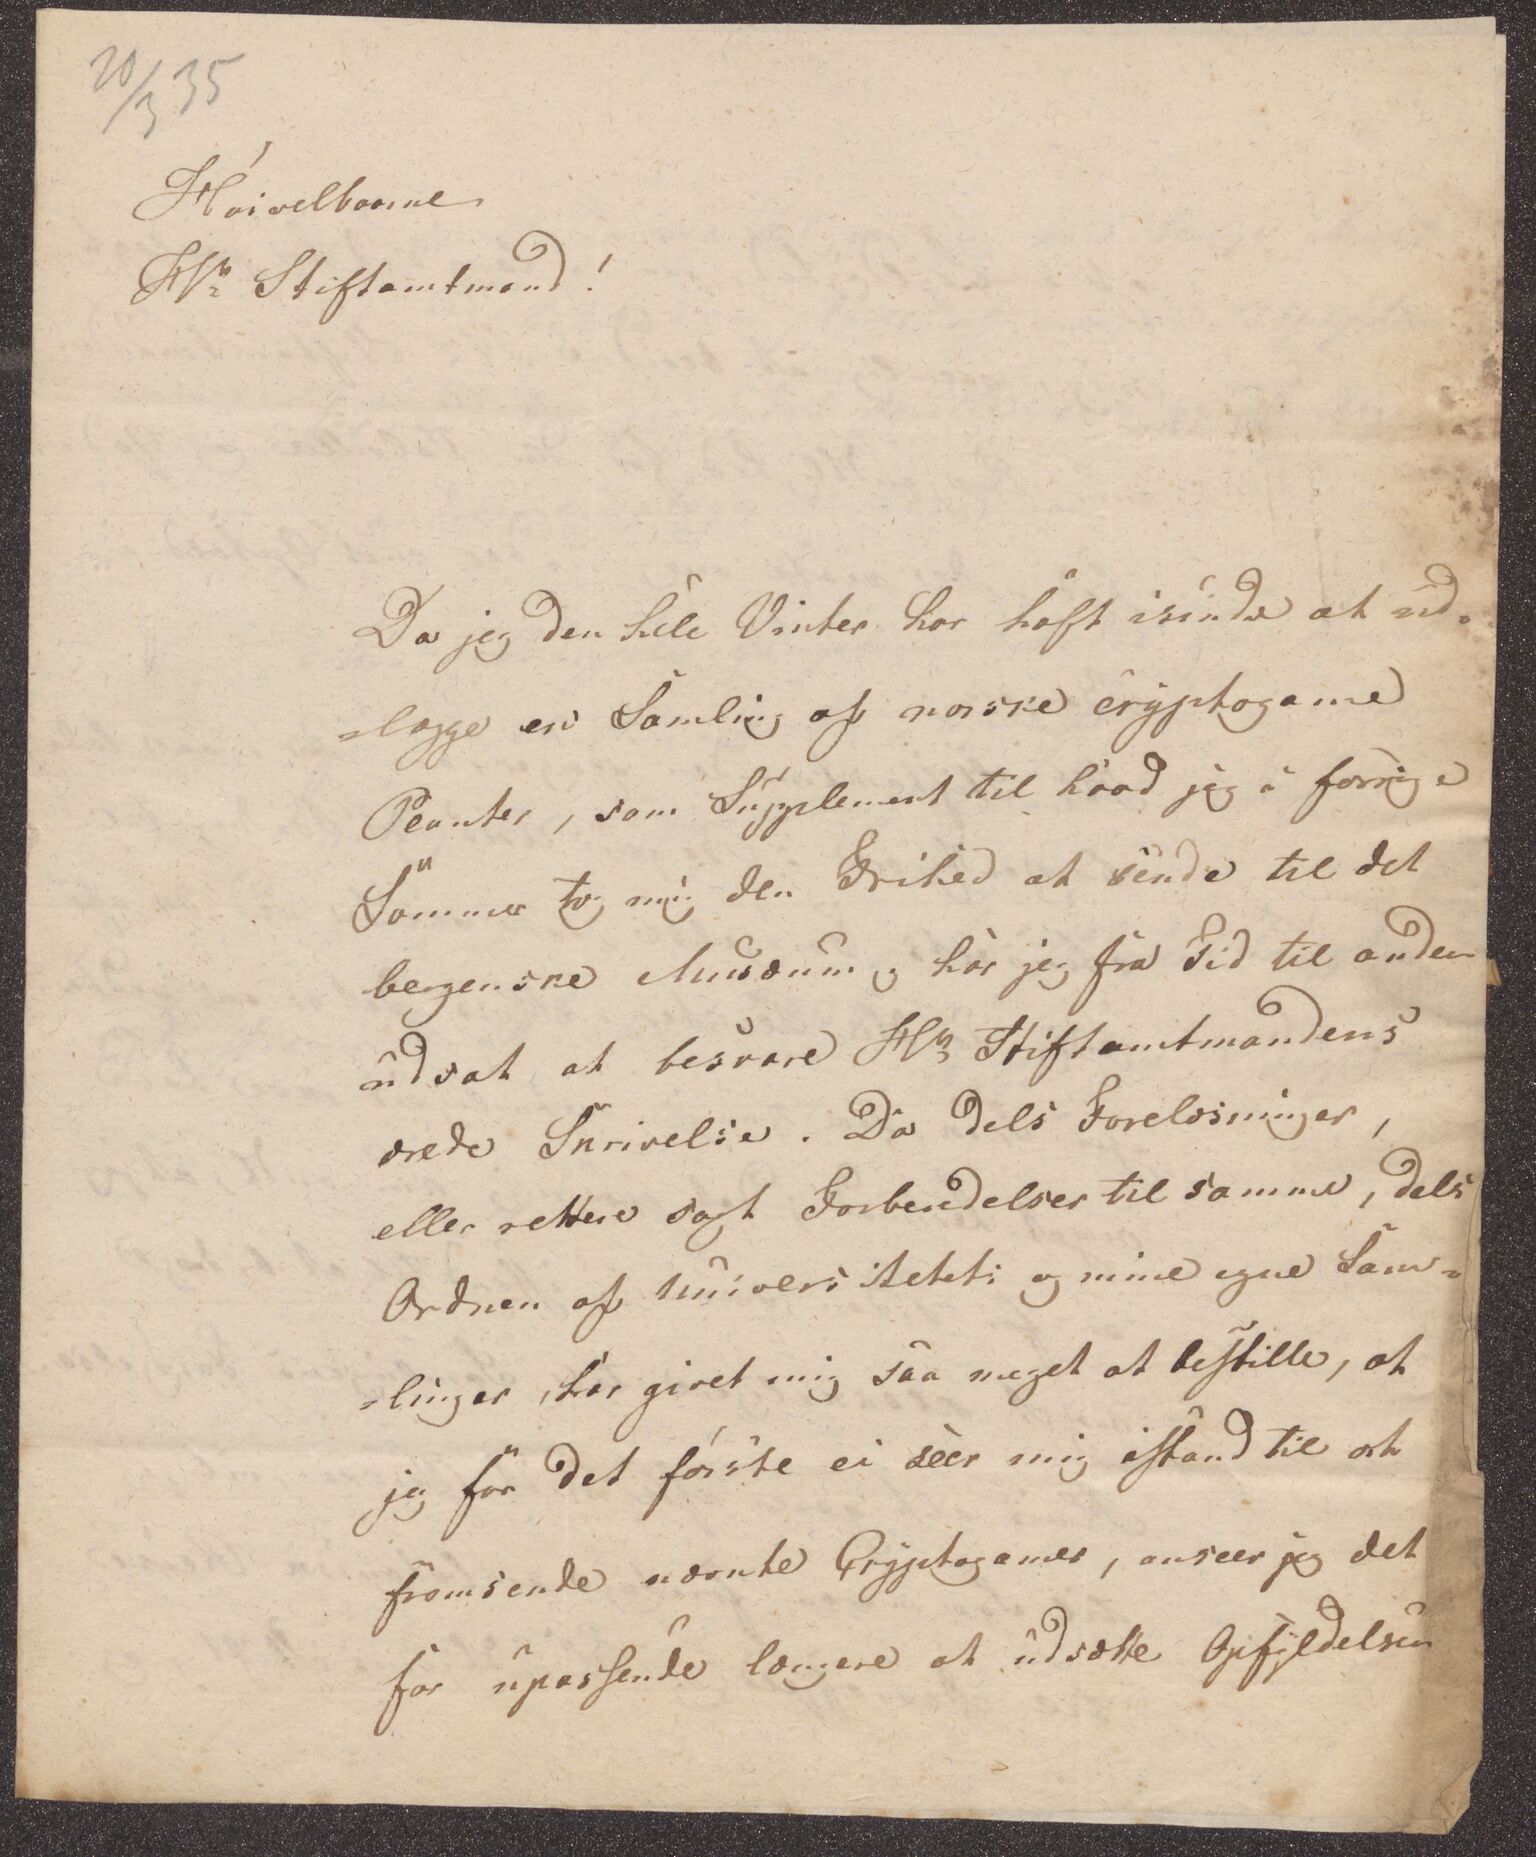 20/3 35
Høivelbaarne
Hr Stiftamtmand!
Da jeg den hele Vinter har haft isinde at ud-
-lægge en Samling af norske cryptogame
Planter, som Supplement til hvad jeg i forrige
Sommer tog mig den Frihed at sende til det
bergenske Musæum, har jeg fra Tid til anden
udsat at besvare Hr Stiftamtmandens
ærede Skrivelse. Da dels Forelæsninger,
eller rettere sagt Forberedelser til samme, dels
Ordnen af Universitetets og mine egne Sam-
-linger, har givet mig saa meget at bestille, at
jeg for det første ei seer mig istand til at
fremsende nævnte Cryptogamer, anseer jeg det
for upassende længere at udsætte Opfyldelsen